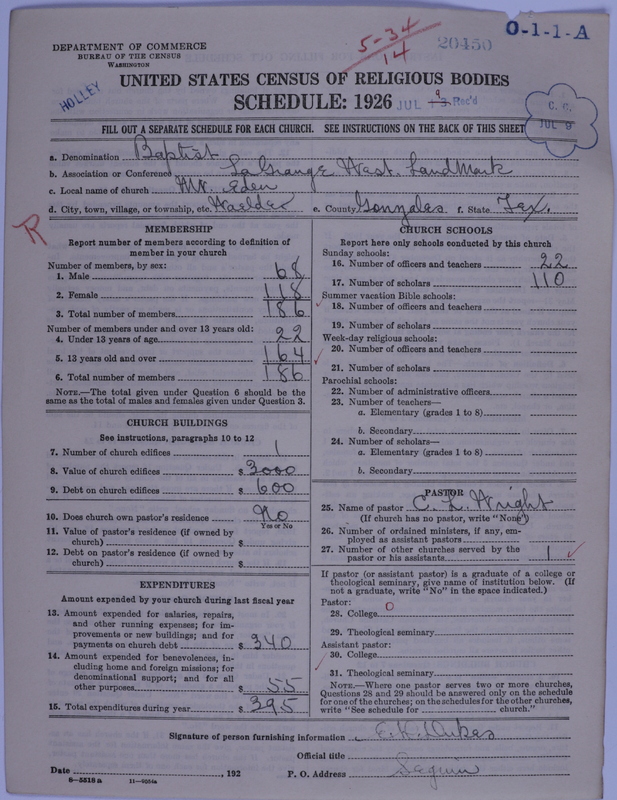 DEPARTMENT OF COMMERCE
BUREAU OF THE CENSUS
WASHINGTON
5-34
14
20450
O-1-1-A
HOLLEY
UNITED STATES CENSUS OF RELIGIOUS BODIES
SCHEDULE: 1926
JUL 13 9 Rec'd
C. C.
JUL 9
FILL OUT A SEPARATE SCHEDULE FOR EACH CHURCH. SEE INSTRUCTIONS ON THE BACK OF THIS SHEET
a. Denomination Baptist
b. Association or Conference LaGrange West. LandMark
c. Local name of church Mt. Eden
d. City, town, village, or township, etc. Waelder e. County Gonzales. f. State Tex.
R
MEMBERSHIP
Report number of members according to definition of
member in your church
Number of members, by sex:
1. Male 68
2. Female 118
3. Total number of members 186
Number of members under and over 13 years old:
4. Under 13 years of age 22
5. 13 years old and over 164
6. Total number of members 186
NOTE.—The total given under Question 6 should be the
same as the total of males and females given under Question 3.
CHURCH BUILDINGS
See instructions, paragraphs 10 to 12
7. Number of church edifices 1
8. Value of church edifices $ 3000
9. Debt on church edifices $ 600
10. Does church own pastor's residence No
Yes or No
11. Value of pastor's residence (if owned by
church) $
12. Debt on pastor's residence (if owned by
church) $
EXPENDITURES
Amount expended by your church during last fiscal year
13. Amount expended for salaries, repairs,
and other running expenses; for im-
provements or new buildings; and for
payments on church debt $ 340
14. Amount expended for benevolences, in-
cluding home and foreign missions; for
denominational support; and for all
other purposes $ 55
15. Total expenditures during year $ 395
CHURCH SCHOOLS
Report here only schools conducted by this church
Sunday schools:
16. Number of officers and teachers 22
17. Number of scholars 110
Summer vacation Bible schools:
18. Number of officers and teachers
19. Number of scholars
Week-day religious schools:
20. Number of officers and teachers
21. Number of scholars
Parochial schools:
22. Number of administrative officers
23. Number of teachers—
a. Elementary (grades 1 to 8)
b. Secondary
24. Number of scholars—
a. Elementary (grades 1 to 8)
b. Secondary
PASTOR
25. Name of pastor C. L. Wright
(If church has no pastor, write "None")
26. Number of ordained ministers, if any, em-
ployed as assistant pastors
27. Number of other churches served by the
pastor or his assistants 1
If pastor (or assistant pastor) is a graduate of a college or
theological seminary, give name of institution below. (If
not a graduate, write "No" in the space indicated.)
Pastor:
28. College 0
29. Theological seminary
Assistant pastor:
30. College
31. Theological seminary
NOTE.—Where one pastor serves two or more churches,
Questions 28 and 29 should be answered only on the schedule
for one of the churches; on the schedules for the other churches,
write "See schedule for church."
Signature of person furnishing information E. K. Dukes
Official title
Date , 192 P. O. Address Seguin
8-5518 a 11-9564a